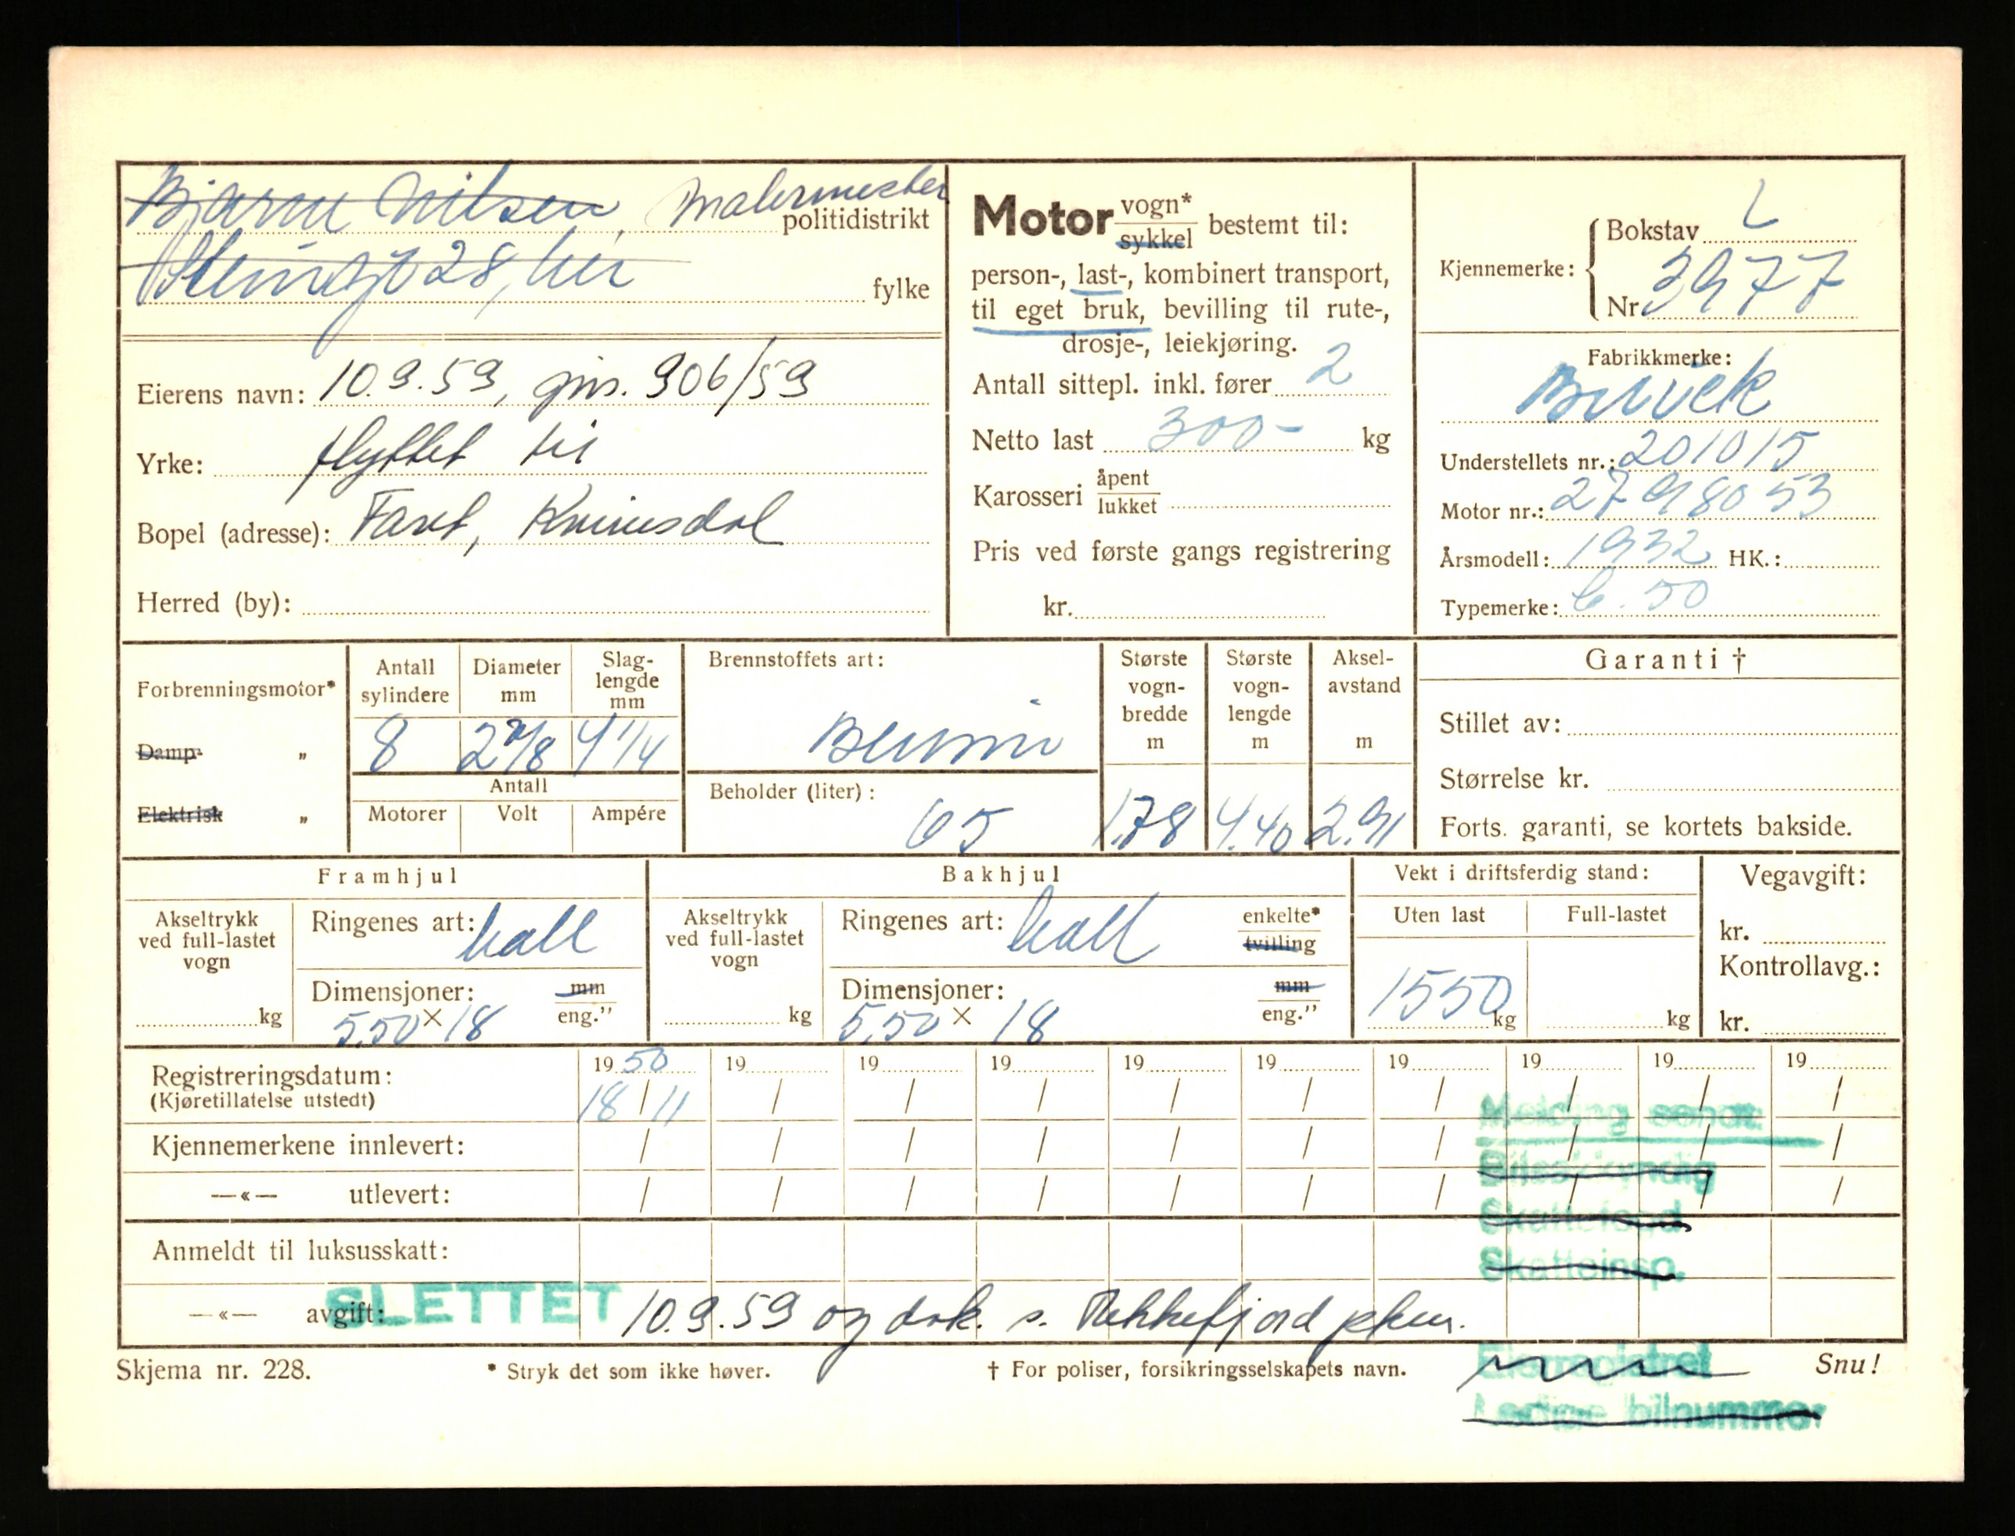 Bjarne Nilsen, Malermester
politidistrikt
Steingt 28, her
fylke
Eierens navn: 10.9.59, gns. 906/59
Yrke: flyttet til
Bopel (adresse): Faret, Kvinesdal
Herred (by):
Motor vogn* sykkel bestemt til:
person-, last-, kombinert transport,
til eget bruk, bevilling til rute-,
drosje-, leiekjøring.
Antall sittepl. inkl. fører 2
Netto last 300- kg
Karosseri åpent lukket
Pris ved første gangs registrering
kr.
Kjennemerke: Bokstav L
Nr 3977
Fabrikkmerke:
Buick
Understellets nr.: 201015
Motor nr.: 2798053
Årsmodell: 1932 HK.:
Typemerke: 6.50
Forbrenningsmotor*
Damp- „
Elektrisk „
Antall sylindere
8
Diameter mm
2 7/8
Slag-lengde mm
4 1/4
Antall
Motorer Volt Ampére
Brennstoffets art:
Bensin
Beholder (liter):
65
Største vogn-bredde m
1.78
Største vogn-lengde m
4.40
Aksel-avstand m
2.91
Garanti †
Stillet av:
Størrelse kr.
Forts. garanti, se kortets bakside.
Framhjul
Akseltrykk ved full-lastet vogn
kg
Ringenes art:
Dimensjoner: mm eng.”
5,50 × 18
Bakhjul
Akseltrykk ved full-lastet vogn
kg
Ringenes art: enkelte* tvilling
Dimensjoner: mm eng.”
5,50 × 18
Vekt i driftsferdig stand:
Uten last Full-lastet
1550 kg kg
Vegavgift:
kr.
Kontrollavg.:
kr.
Registreringsdatum: 19 50 19 19 19 19 19 19 19 19 19
(Kjøretillatelse utstedt) 18 / 11 / / / / / / / / /
Melding sendt:
Kjennemerkene innlevert: / / / / / / / / / /
Bilsakkyndig
—«— utlevert: / / / / / / / / / /
Skattefogd
Anmeldt til luksusskatt:
Skatteinsp.
—«— avgift:
SLETTET 10.9.59 og dok. s. Flekkefjord pkm.
Skjema nr. 228.
* Stryk det som ikke høver.
† For poliser, forsikringsselskapets navn.
Eierregistret
Snu!
Ledige bilnummer